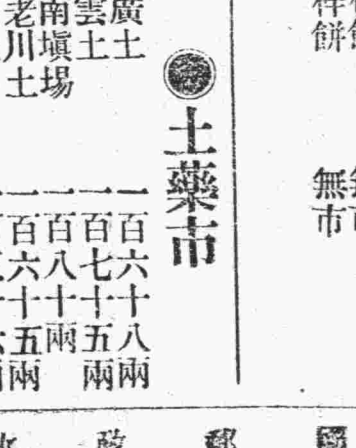 餅 無市
土藥市
廣土 一百六十八兩
雲土 一百七十五兩
南塡場 一百八十兩
老川土 一百六十五兩